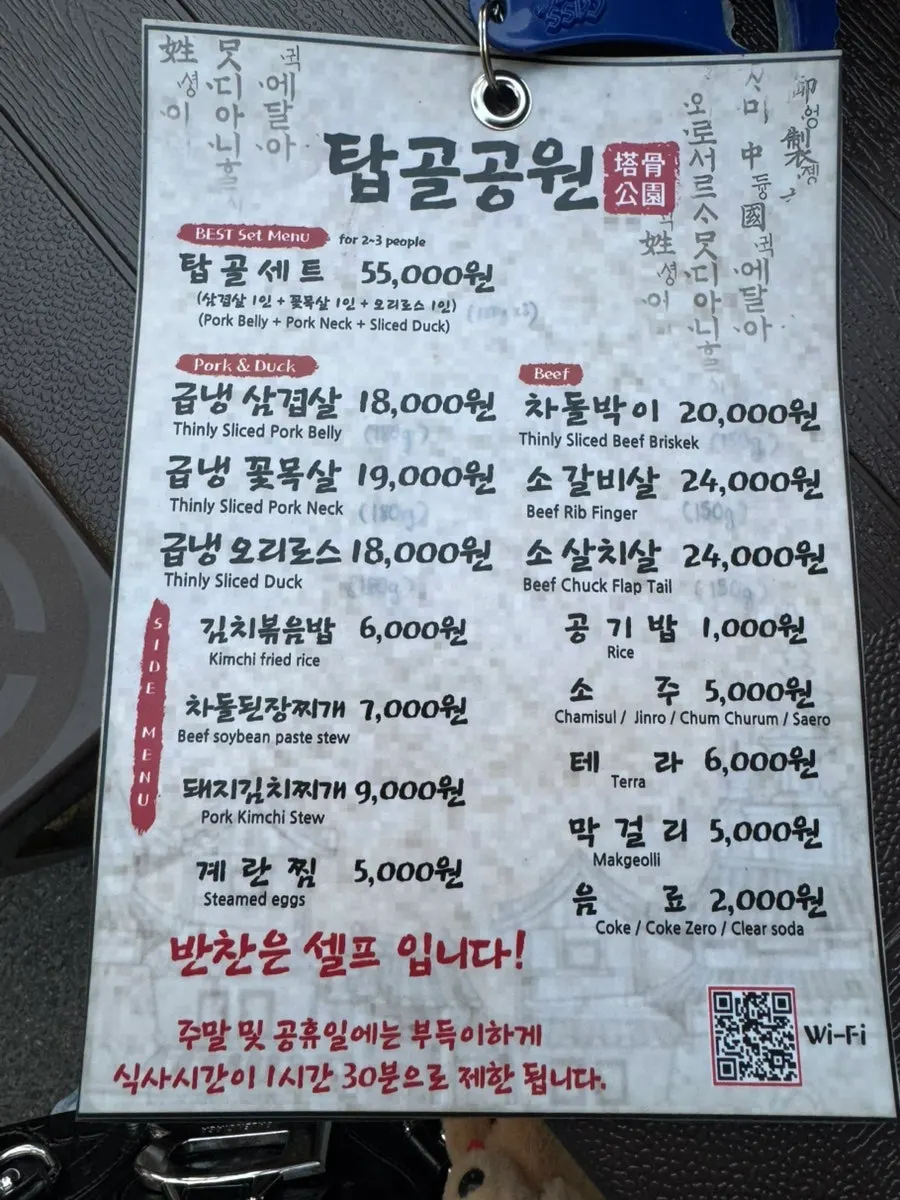 탑골공원 塔骨公園
BEST Set Menu for 2~3 people
탑골세트 55,000원
(삼겹살 1인 + 꽃목살 1인 + 오리로스 1인)
(Pork Belly + Pork Neck + Sliced Duck)
Pork & Duck
급냉 삼겹살 18,000원
Thinly Sliced Pork Belly
급냉 꽃목살 19,000원
Thinly Sliced Pork Neck
(180g)
급냉 오리로스 18,000원
Thinly Sliced Duck
Beef
차돌박이 20,000원
Thinly Sliced Beef Briskek
소 갈비살 24,000원
Beef Rib Finger
(150g)
소 살치살 24,000원
Beef Chuck Flap Tail
(150g)
SIDE MENU
김치볶음밥 6,000원
Kimchi fried rice
차돌된장찌개 7,000원
Beef soybean paste stew
돼지김치찌개 9,000원
Pork Kimchi Stew
계란찜 5,000원
Steamed eggs
공기밥 1,000원
Rice
소주 5,000원
Chamisul / Jinro / Chum Churum / Saero
테라 6,000원
Terra
막걸리 5,000원
Makgeolli
음료 2,000원
Coke / Coke Zero / Clear soda
반찬은 셀프 입니다!
주말 및 공휴일에는 부득이하게
식사시간이 1시간 30분으로 제한 됩니다.
Wi-Fi